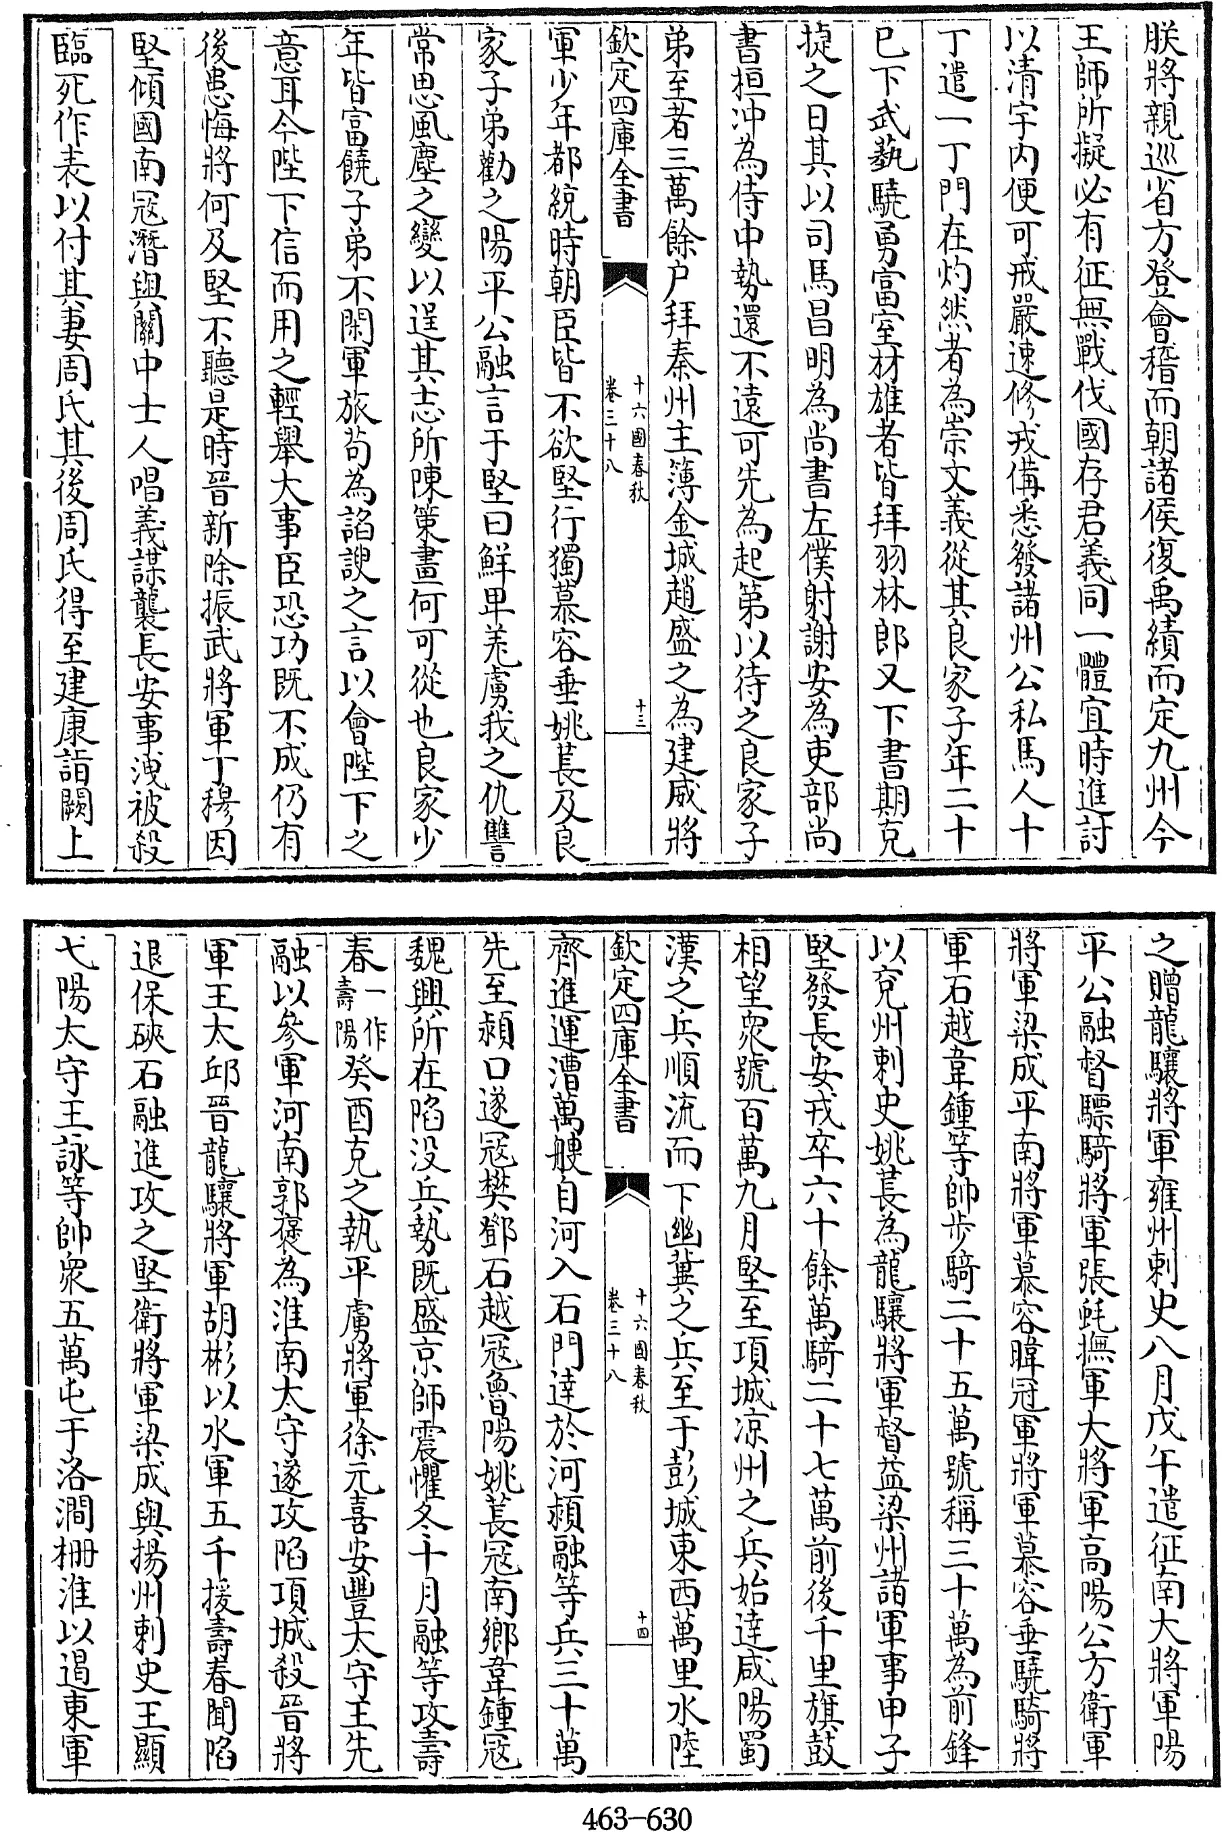 朕將親巡省方登會稽而朝諸侯復禹績而定九州今
王師所擬必有征無戰伐國存君義同一體宜時進討
以清宇内便可戒嚴速修戎備悉發諸州公私馬人十
丁遣一丁門在灼然者為崇文義從其良家子年二十
已下武藝驍勇富室材雄者皆拜羽林郎又下書期克
捷之日其以司馬昌明為尚書左僕射謝安為吏部尚
書桓冲為侍中勢還不遠可先為起第以待之良家子
弟至者三萬餘户拜秦州主簿金城趙盛之為建威將
欽定四庫全書
十六國春秋
卷三十八
十三
軍少年都統時朝臣皆不欲堅行獨慕容垂姚萇及良
家子弟勸之陽平公融言于堅曰鮮卑羌虜我之仇讐
常思風塵之變以逞其志所陳策畫何可從也良家少
年皆富饒子弟不閑軍旅苟為諂諛之言以會陛下之
意耳今陛下信而用之輕舉大事臣恐功既不成仍有
後患悔將何及堅不聽是時晉新除振武將軍丁穆因
堅傾國南寇潛與關中士人唱義謀襲長安事洩被殺
臨死作表以付其妻周氏其後周氏得至建康詣闕上
之贈龍驤將軍雍州刺史八月戊午遣征南大將軍陽
平公融督驃騎將軍張蚝撫軍大將軍高陽公方衛軍
將軍梁成平南將軍慕容暐冠軍將軍慕容垂驍騎將
軍石越韋鍾等帥步騎二十五萬號稱三十萬為前鋒
以兖州刺史姚萇為龍驤將軍督益梁州諸軍事甲子
堅發長安戎卒六十餘萬騎二十七萬前後千里旗鼓
相望衆號百萬九月堅至項城凉州之兵始達咸陽蜀
漢之兵順流而下幽冀之兵至于彭城東西萬里水陸
欽定四庫全書
十六國春秋
卷三十八
十四
齊進運漕萬艘自河入石門達於河潁融等兵三十萬
先至潁口遂寇樊鄧石越寇魯陽姚萇寇南鄉韋鍾寇
魏興所在陷没兵勢既盛京師震懼冬十月融等攻壽
春一作壽陽癸酉克之執平虜將軍徐元喜安豐太守王先
融以參軍河南郭褒為淮南太守遂攻陷項城殺晉將
軍王太邱晉龍驤將軍胡彬以水軍五千援壽春聞陷
退保硤石融進攻之堅衛將軍梁成與揚州刺史王顯
弋陽太守王詠等帥衆五萬屯于洛澗柵淮以遏東軍
463-630